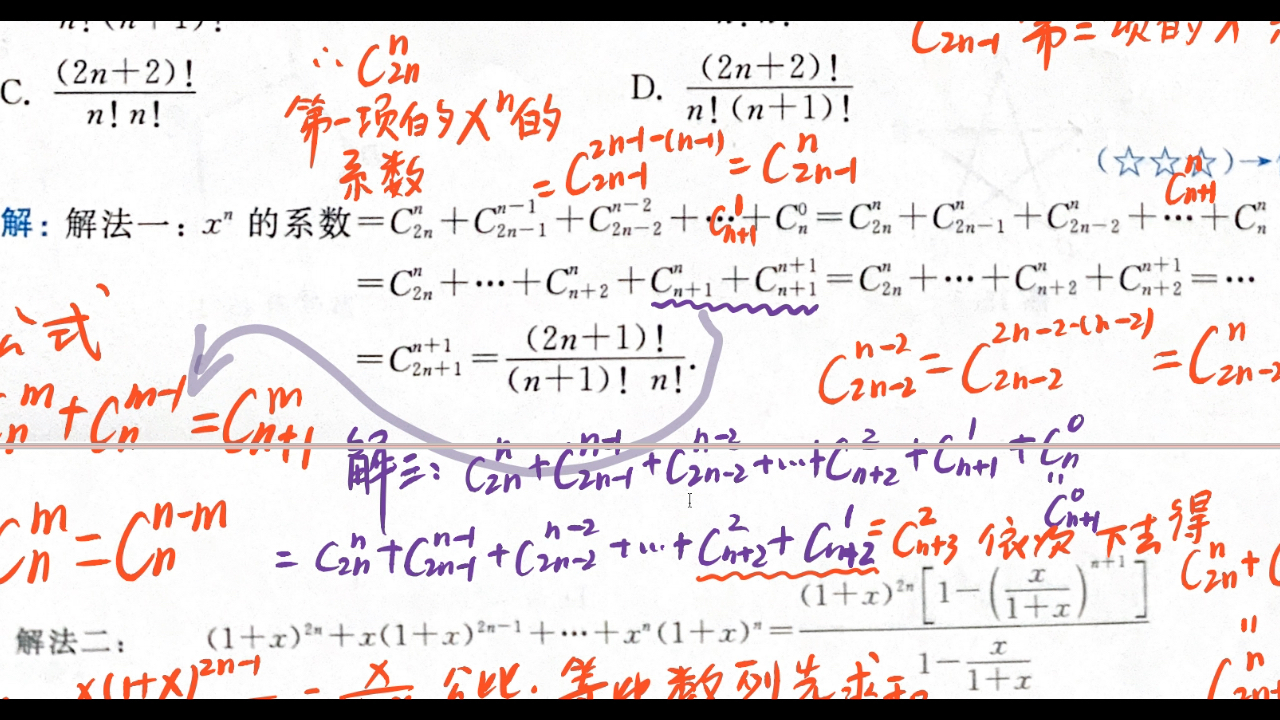 C. \frac{(2n+2)!}{n! n!}
D. \frac{(2n+2)!}{n! (n+1)!}
∴ C_{2n}^{n}
第一项的 x^n 的
系数
= C_{2n-1}^{2n-1-(n-1)} = C_{2n-1}^{n}
(☆☆☆)→
C_{n+1}^{n}
解: 解法一: x^n 的系数 = C_{2n}^{n} + C_{2n-1}^{n-1} + C_{2n-2}^{n-2} + ⋯ + C_{n}^{0} = C_{2n}^{n} + C_{2n-1}^{n} + C_{2n-2}^{n} + ⋯ + C_{n}^{n}
C_{n+1}^{1}
= C_{2n}^{n} + ⋯ + C_{n+2}^{n} + C_{n+1}^{n} + C_{n+1}^{n+1} = C_{2n}^{n} + ⋯ + C_{n+2}^{n} + C_{n+2}^{n+1} = ⋯
= C_{2n+1}^{n+1} = \frac{(2n+1)!}{(n+1)! n!}.
公式
C_{n}^{m} + C_{n}^{m-1} = C_{n+1}^{m}
C_{2n-2}^{n-2} = C_{2n-2}^{2n-2-(n-2)} = C_{2n-2}^{n}
解三: C_{2n}^{n} + C_{2n-1}^{n-1} + C_{2n-2}^{n-2} + ⋯ + C_{n+2}^{2} + C_{n+1}^{1} + C_{n}^{0}
C_{n+1}^{0}
C_{n}^{m} = C_{n}^{n-m}
= C_{2n}^{n} + C_{2n-1}^{n-1} + C_{2n-2}^{n-2} + ⋯ + C_{n+2}^{2} + C_{n+2}^{1} = C_{n+3}^{2} 依次下去得
C_{2n}^{n} +
解法二: (1+x)^{2n} + x(1+x)^{2n-1} + ⋯ + x^n(1+x)^n = \frac{(1+x)^{2n}[1-(\frac{x}{1+x})^{n+1}]}{1-\frac{x}{1+x}}
x(1+x)^{2n-1} = x 公比. 等比数列先求和